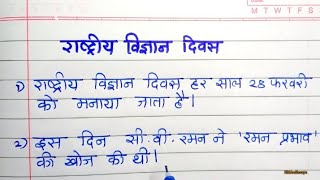 M T W T F S
राष्ट्रीय विज्ञान दिवस
1) राष्ट्रीय विज्ञान दिवस हर साल 28 फरवरी
को मनाया जाता है।
2) इस दिन सी.वी. रमन ने 'रमन प्रभाव'
की खोज की थी।